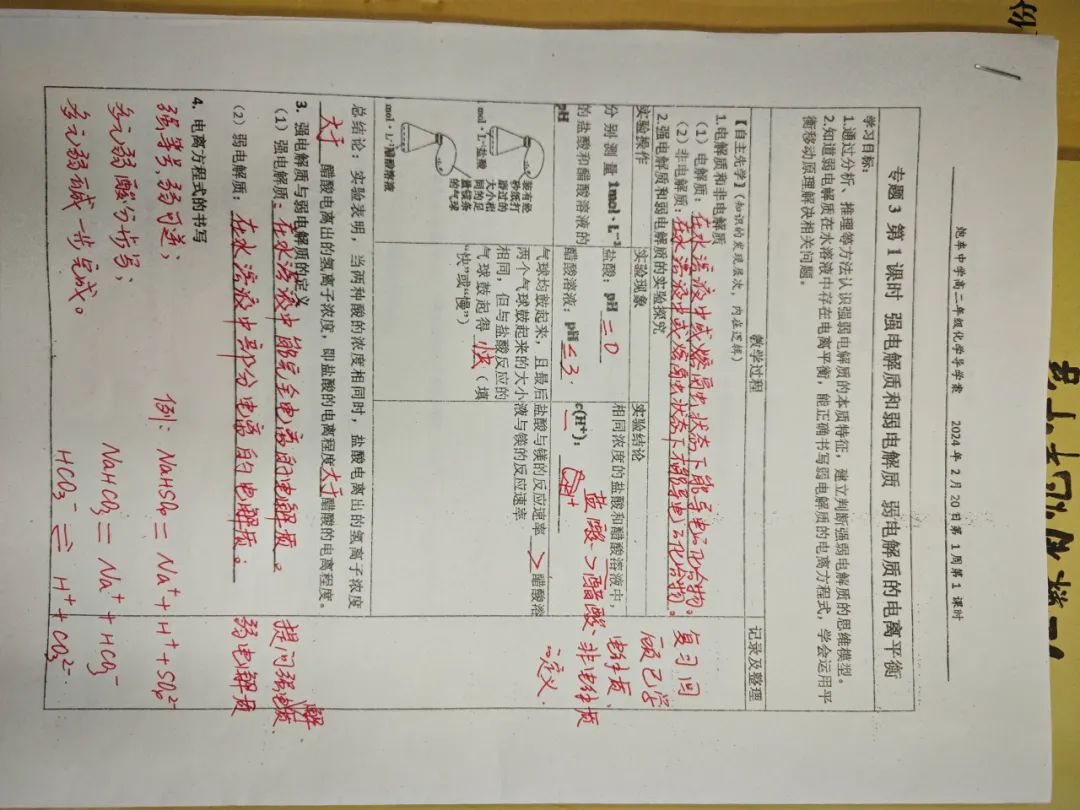 炮车中学高二年级化学导学案 2024年2月20日第1周第1课时
专题3 第1课时 强电解质和弱电解质 弱电解质的电离平衡
学习目标:
1.通过分析、推理等方法认识强弱电解质的本质特征,建立判断强弱电解质的思维模型。
2.知道弱电解质在水溶液中存在电离平衡,能正确书写弱电解质的电离方程式,学会运用平
衡移动原理解决相关问题。
教学过程
记录及整理
【自主先学】(知识的发现层次,内在逻辑)
1.电解质和非电解质
(1)电解质:在水溶液中或熔融状态下能导电的化合物。
(2)非电解质:在水溶液中或熔融状态下不能导电的化合物。
2.强电解质和弱电解质的实验探究
实验操作
实验现象
实验结论
分别测量1mol·L⁻¹
的盐酸和醋酸溶液的
pH
盐酸:pH = 0
醋酸溶液:pH ≤ 3.
相同浓度的盐酸和醋酸溶液中,
c(H⁺):
盐酸 > 醋酸
装有经
砂纸打
磨过的
大小相
同的足
量镁条
的气球
mol·L⁻¹盐酸
mol·L⁻¹醋酸溶液
气球均鼓起来,且最后
两个气球鼓起来的大小
相同,但与盐酸反应的
气球鼓起得 快 (填
“快”或“慢”)
盐酸与镁的反应速率 > 醋酸溶
液与镁的反应速率
总结论:实验表明,当两种酸的浓度相同时,盐酸电离出的氢离子浓度
大于 醋酸电离出的氢离子浓度,即盐酸的电离程度大于醋酸的电离程度。
3.强电解质与弱电解质的定义
(1)强电解质:在水溶液中能完全电离的电解质。
(2)弱电解质:在水溶液中部分电离的电解质。
4.电离方程式的书写
强等号,弱可逆;
多元弱酸分步写;
多元弱碱一步完成。
例: NaHSO₄ = Na⁺ + H⁺ + SO₄²⁻
NaHCO₃ = Na⁺ + HCO₃⁻
HCO₃⁻ ⇌ H⁺ + CO₃²⁻
复习回
顾已学
电解质、
非电解质
的定义.
提问强电解质、
弱电解质